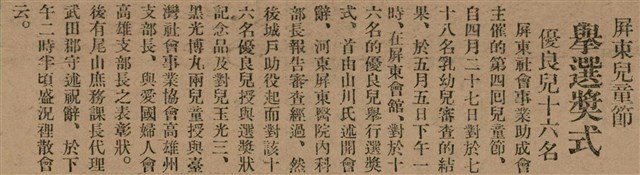 屏東兒童節
舉選獎式
優良兒十六名
屏東社會事業助成會
主催的第四回兒童節、
自四月二十七日對於七
十八名乳幼兒審查的結
果、於五月五日下午一
時、在屏東會館、對於十
六名的優良兒舉行選獎
式。首由山川氏述開會
辭、河東屏東醫院內科
部長報告審查經過、然
後城戶助役起而對該十
六名優良兒授與選獎狀
記念品及對兒玉光三、
黑光博丸兩兒童授與臺
灣社會事業協會高雄州
支部長、與愛國婦人會
高雄支部長之表彰狀。
後有尾山庶務課長代理
武田郡守述祝辭、於下
午二時半頃盛況裡散會
云。